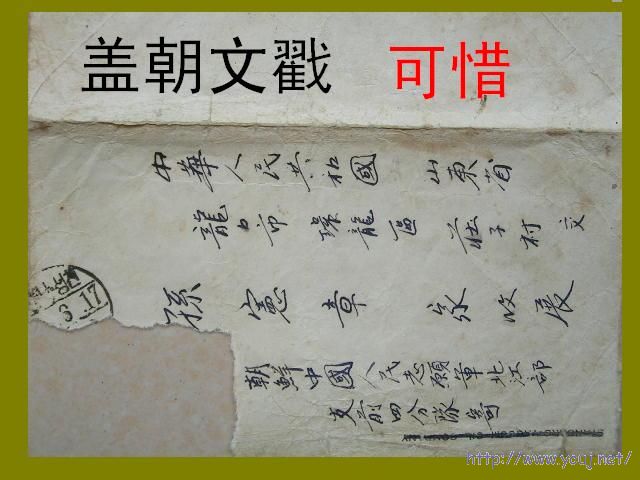 盖朝文戳 可惜
中華人民共和國 山東省
龍口市 環龍區 莊子村 交
孫憲章 家收展
朝鮮中國人民志願軍北江部
支前四分隊寄
3 17
http://www.youj.net/